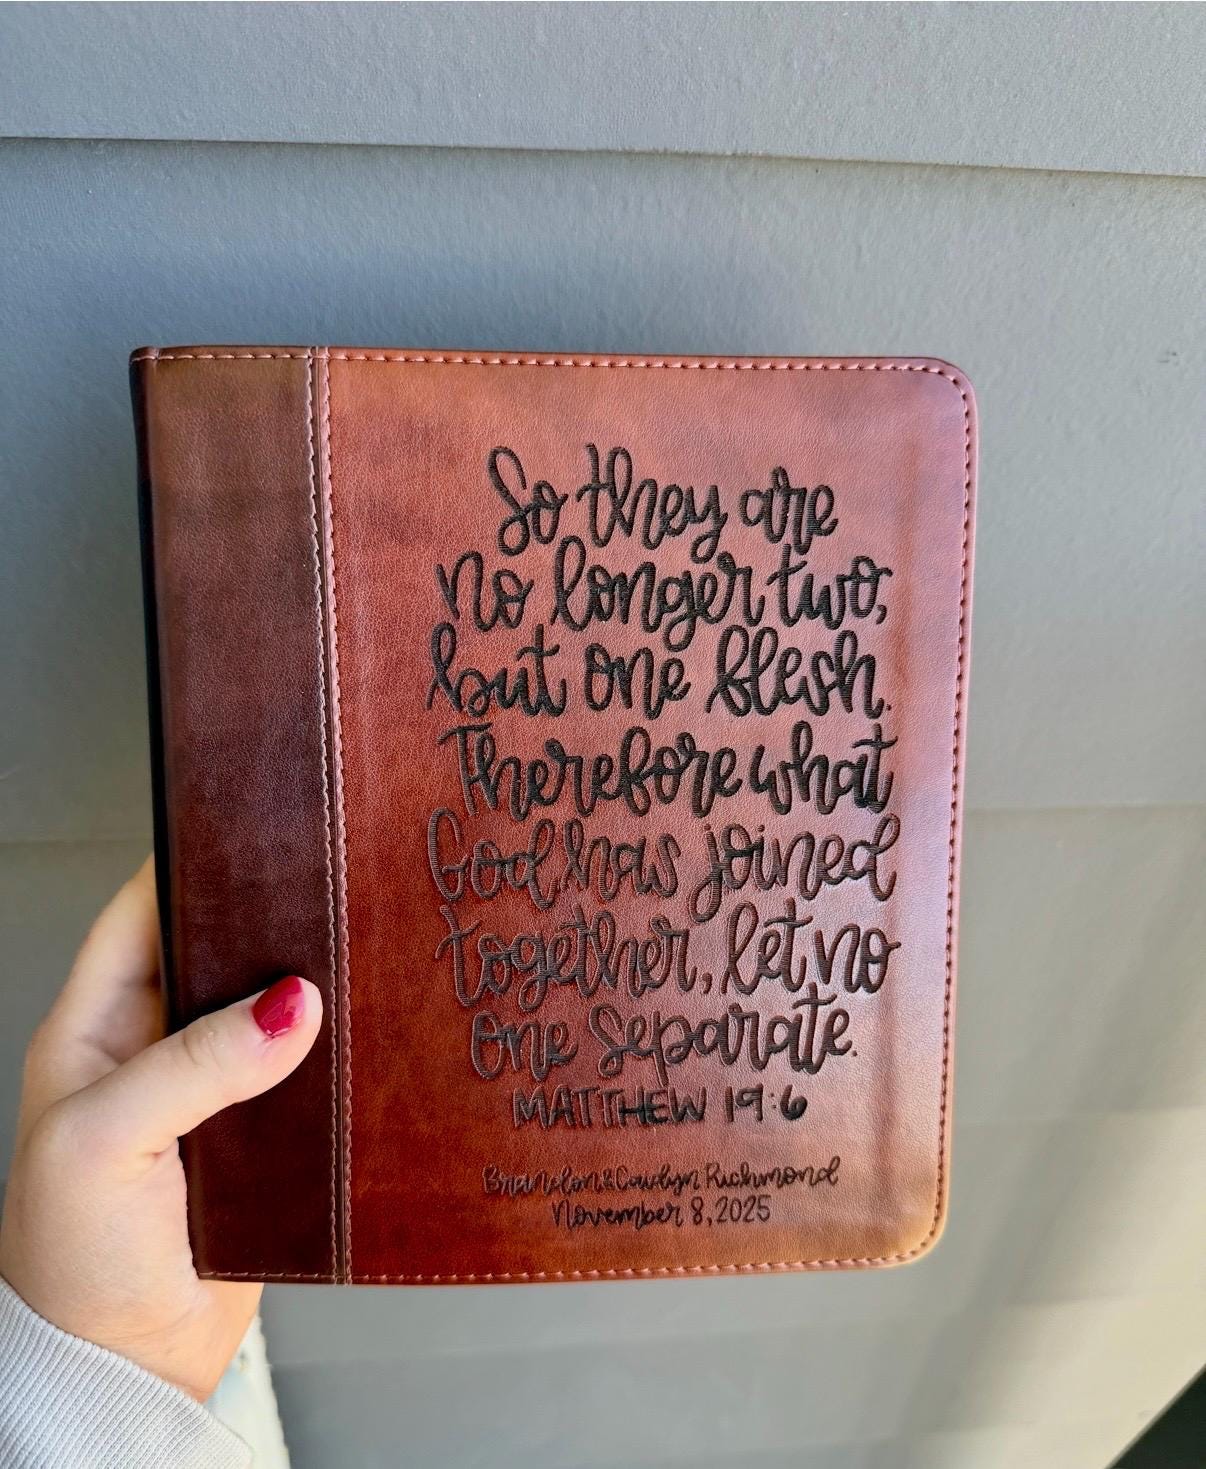 So they are
no longer two,
but one flesh.
Therefore what
God has joined
together, let no
one separate.
MATTHEW 19:6
Brandon & Caidyn Richmond
November 8, 2025